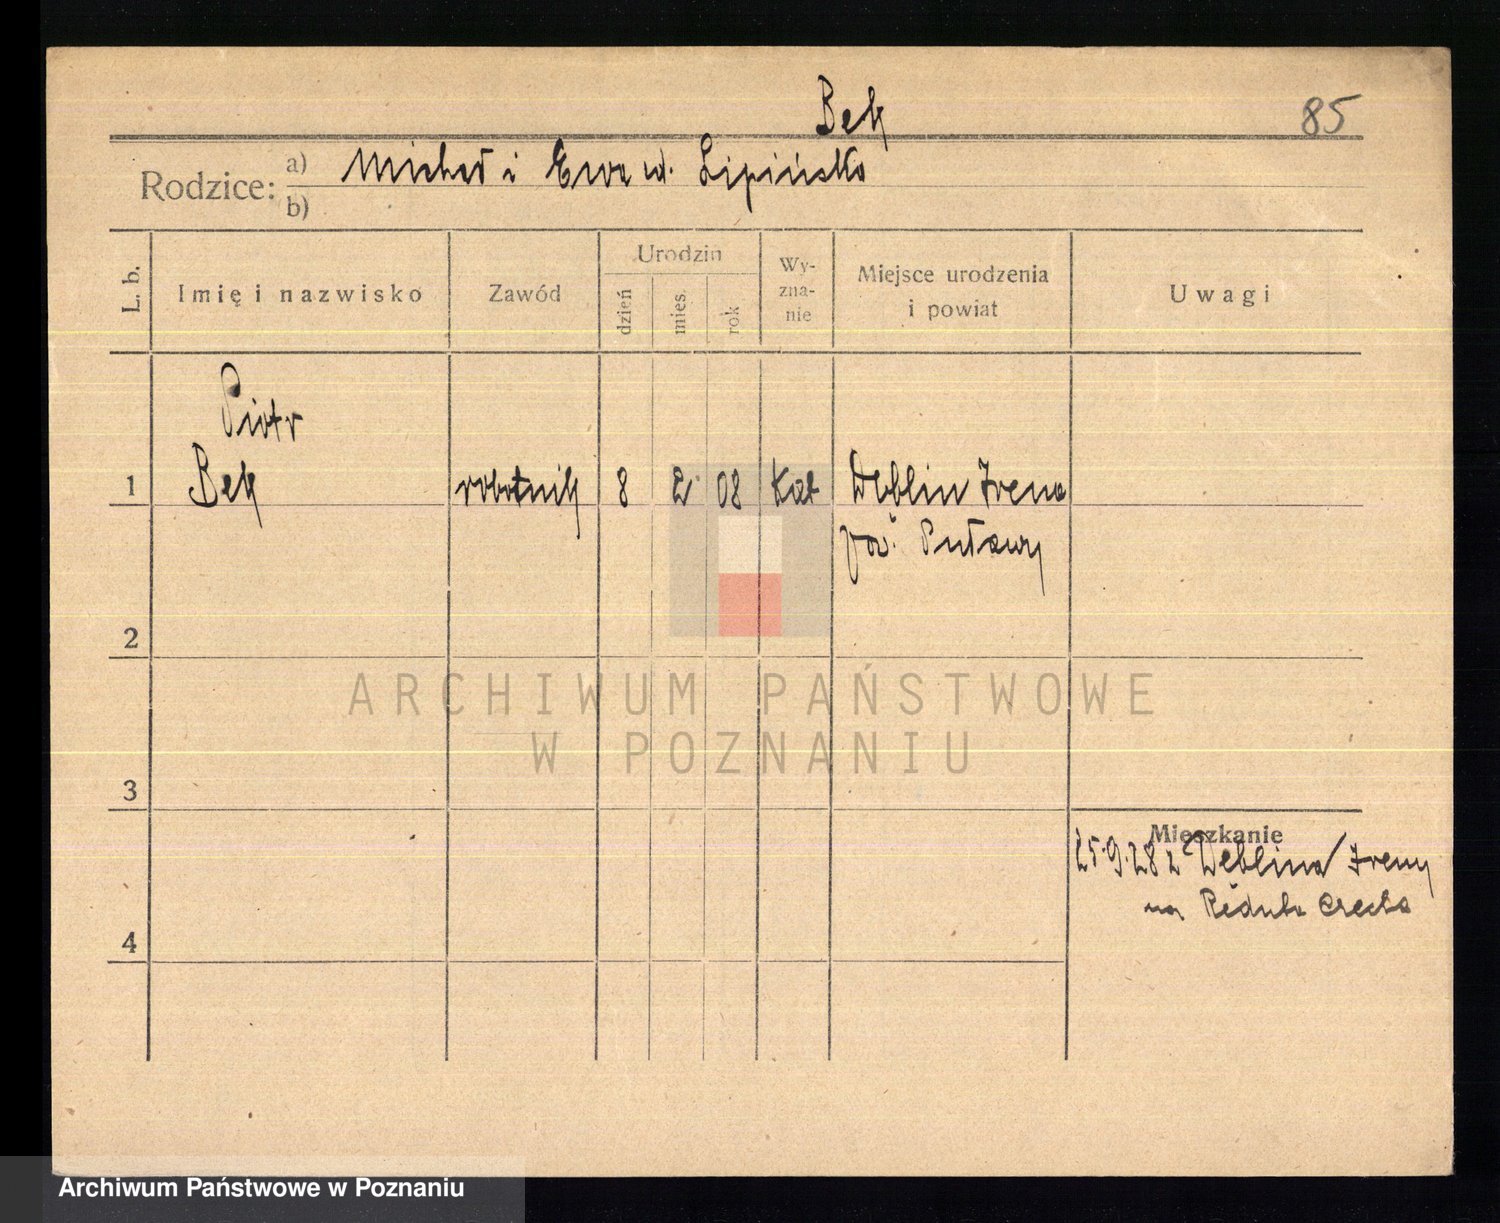 Bek
85
Rodzice:
a) Michał i Ewa ud. Lipińska
b)
L. b.
Imię i nazwisko
Zawód
Urodzin
dzień
mies.
rok
Wy-
zna-
nie
Miejsce urodzenia
i powiat
Uwagi
Piotr
1 Bek robotnik 8 2 08 kat Dęblin Irena
pow. Puławy
2
3
4
Mieszkanie
25.9.28 z Dęblina Ireny
na Reduta
ARCHIWUM PAŃSTWOWE
W POZNANIU
Archiwum Państwowe w Poznaniu